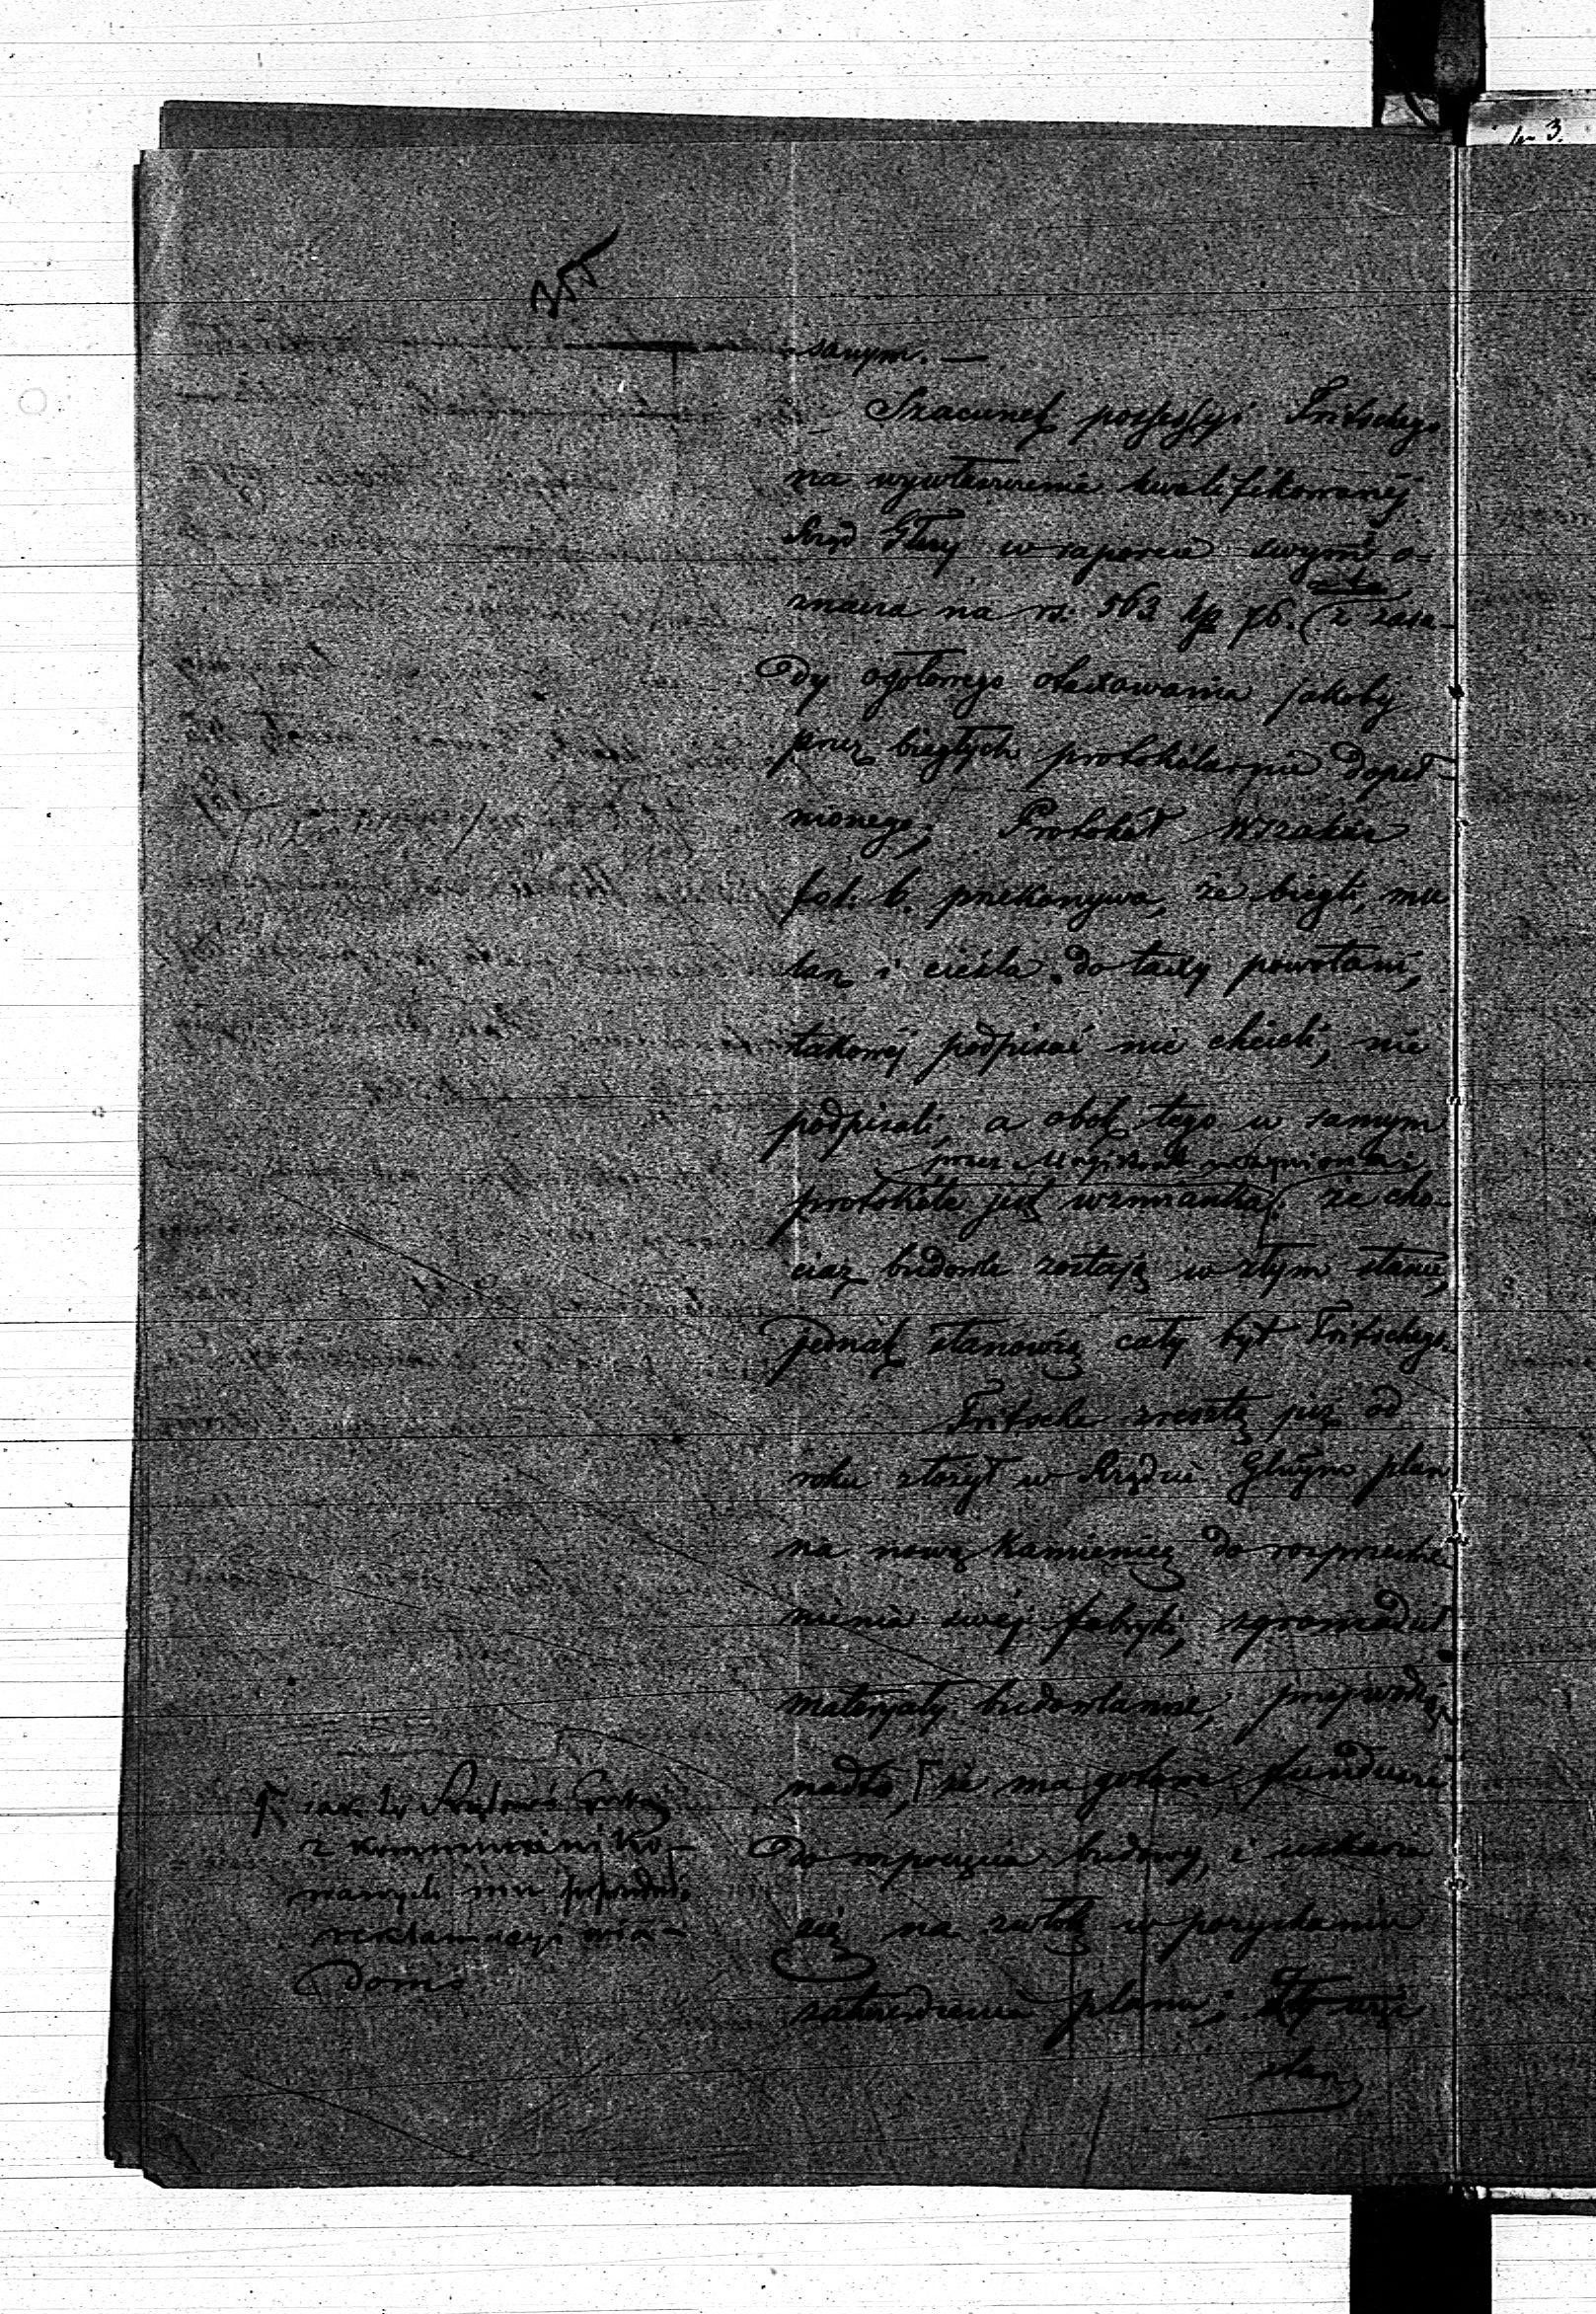 355
sanym. —
Szacunek possessyi Fritschego
na wywłaszczenie kwalifikowanéj
Rząd Glny w raporcie swym o=
znacza na rs. 563 kp 76. (z zasa-
dy ogólnego otaxowania jakoby
przez biegłych protokólarnie dopeł-
nionego; Protokół wszakże
fol. 6. przekonywa, że biegli, mu
larz i cieśla do taxy powołani,
takowéj podpisać nie chcieli, nie
podpisali, a obok tego w samym
przez Magistrat
protokóle jest wzmianka: że cho-
ciaż budowle zostają w złym stanie,
jednak stanowią cały byt Fritschego.
Fritsche zresztą już od
roku złożył w Rządzie Glnym plan
na nową kamienicę do rozprzestrze
nienia swéj fabryki, zgromadził
materyały budowlanne, przywodzi
nadto, że ma gotowe fundusze
do rozpoczęcia budowy, i uskarża
się na zwłokę w pozyskaniu
zatwierdzenia planu;
stan
z kommuniko-
wanych mu
reklamacyi wia-
domo
3.